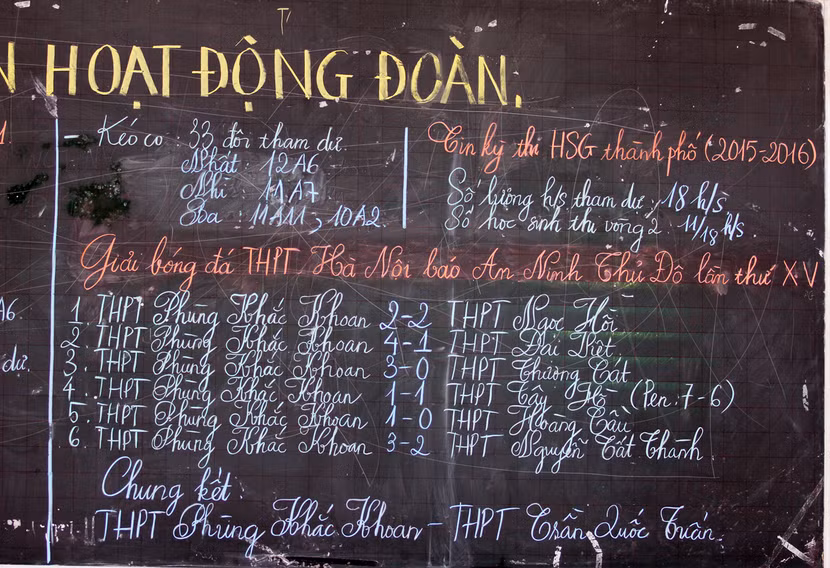 N HOẠT ĐỘNG ĐOÀN.
- Kéo co : 33 đội tham dự.
Nhất 12A6
Nhì : 11A7
Ba : 11A11 ; 10A2.
Tin kỳ thi HSG thành phố (2015-2016)
Số lượng h/s tham dự : 18 h/s
Số học sinh thi vòng 2 : 11/18 h/s.
Giải bóng đá THPT Hà Nội báo An Ninh Thủ Đô lần thứ XV
A6.
dự.
1. THPT Phùng Khắc Khoan 2-2 THPT Ngọc Hồi
2. THPT Phùng Khắc Khoan 4-1 THPT Đại Việt
3. THPT Phùng Khắc Khoan 3-0 THPT Thường Tất
4. THPT Phùng Khắc Khoan 1-1 THPT Tây Hồ (Pen : 7-6)
5. THPT Phùng Khắc Khoan 1-0 THPT Hoàng Cầu
6. THPT Phùng Khắc Khoan 3-2 THPT Nguyễn Tất Thành
Chung kết :
THPT Phùng Khắc Khoan - THPT Trần Quốc Tuấn.